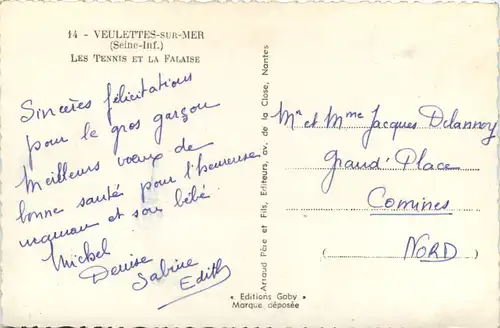 14 - VEULETTES-SUR-MER
(Seine-Inf.)
LES TENNIS ET LA FALAISE
Sincères félicitations
pour le gros garçon
Meilleurs voeux de
bonne santé pour l'heureuse
maman et son bébé
Michel
Denise
Sabine
Edith
Artaud Père et Fils, Editeurs, av. de la Close, Nantes
Mr et Mme Jacques Delannoy
Grand' Place
Comines
(NORD)
* Editions Gaby *
Marque déposée